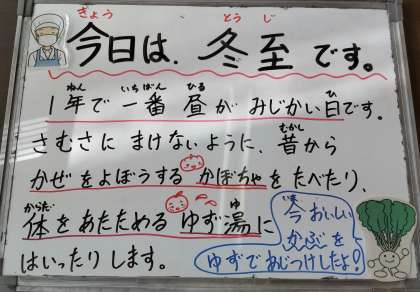 きょう　とうじ
今日は、冬至です。
ねん　いちばん　ひる　ひ
1年で一番昼がみじかい日です。
むかし
さむさにまけないように、昔から
かぜをよぼうするかぼちゃをたべたり、
からだ　ゆ
体をあたためるゆず湯に
はいったりします。
いま
今おいしい
かぶを
ゆずであじつけしたよ!